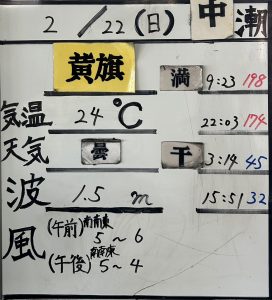 2/22(日) 中潮
黄旗 満 9:23 198
22:03 174
気温 24℃
天気 曇 干 3:14 45
波 1.5 m 15:51 32
風 (午前) 南南東 5～6
(午後) 南南東 5～4